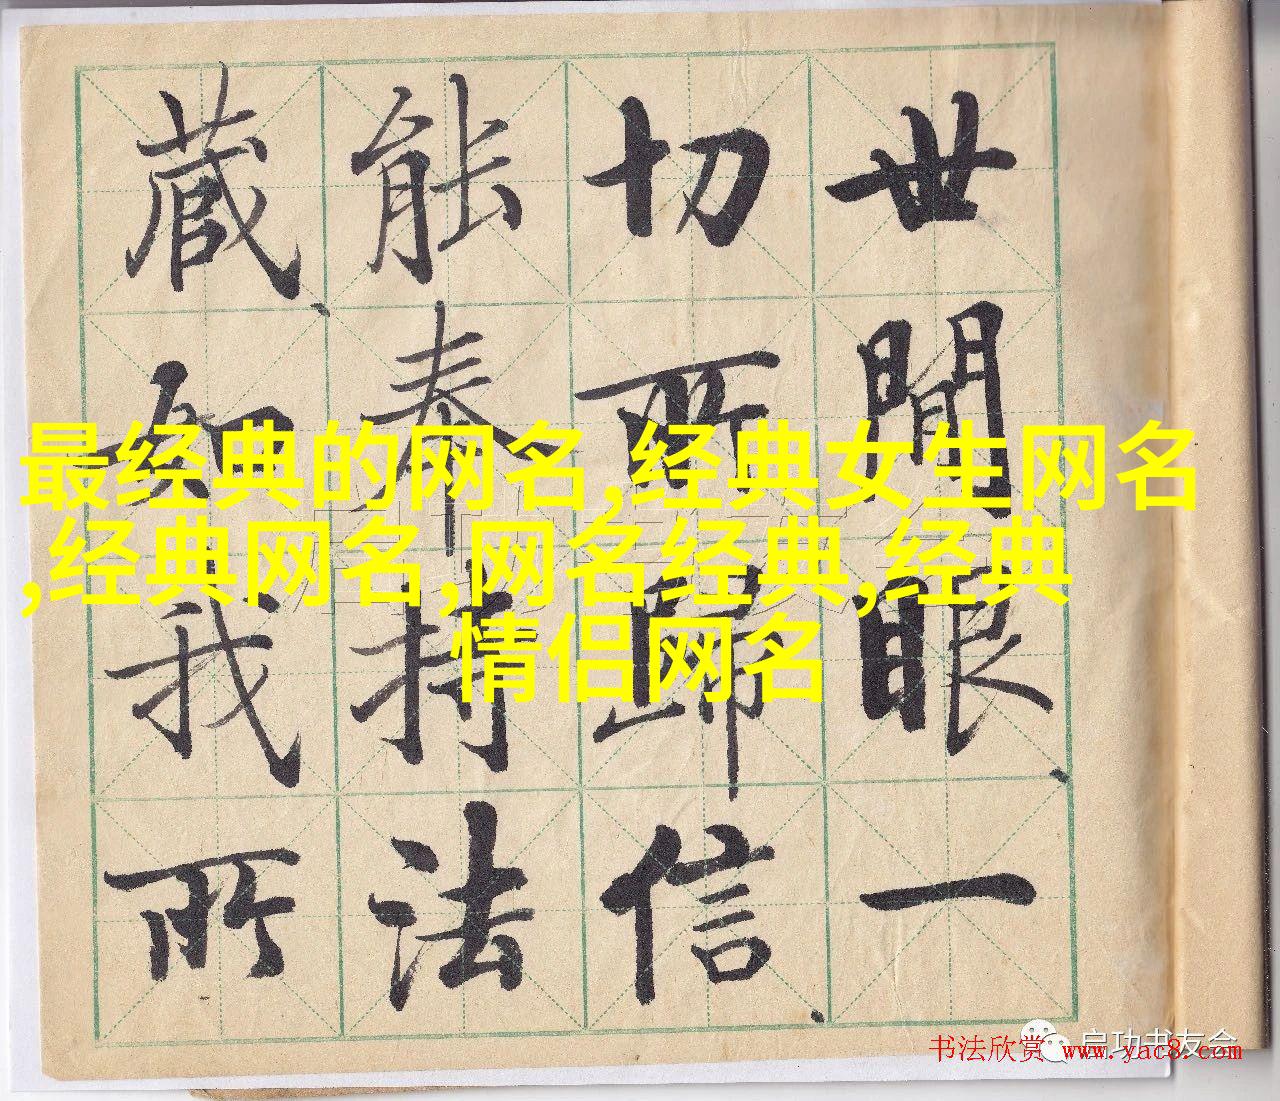 世間眼一
切所歸信
能奉持法
藏如我所
最经典的网名,经典女生网名
,经典网名,网名经典,经典
情侣网名
启功书友会
书法欣赏 www.yac8.com